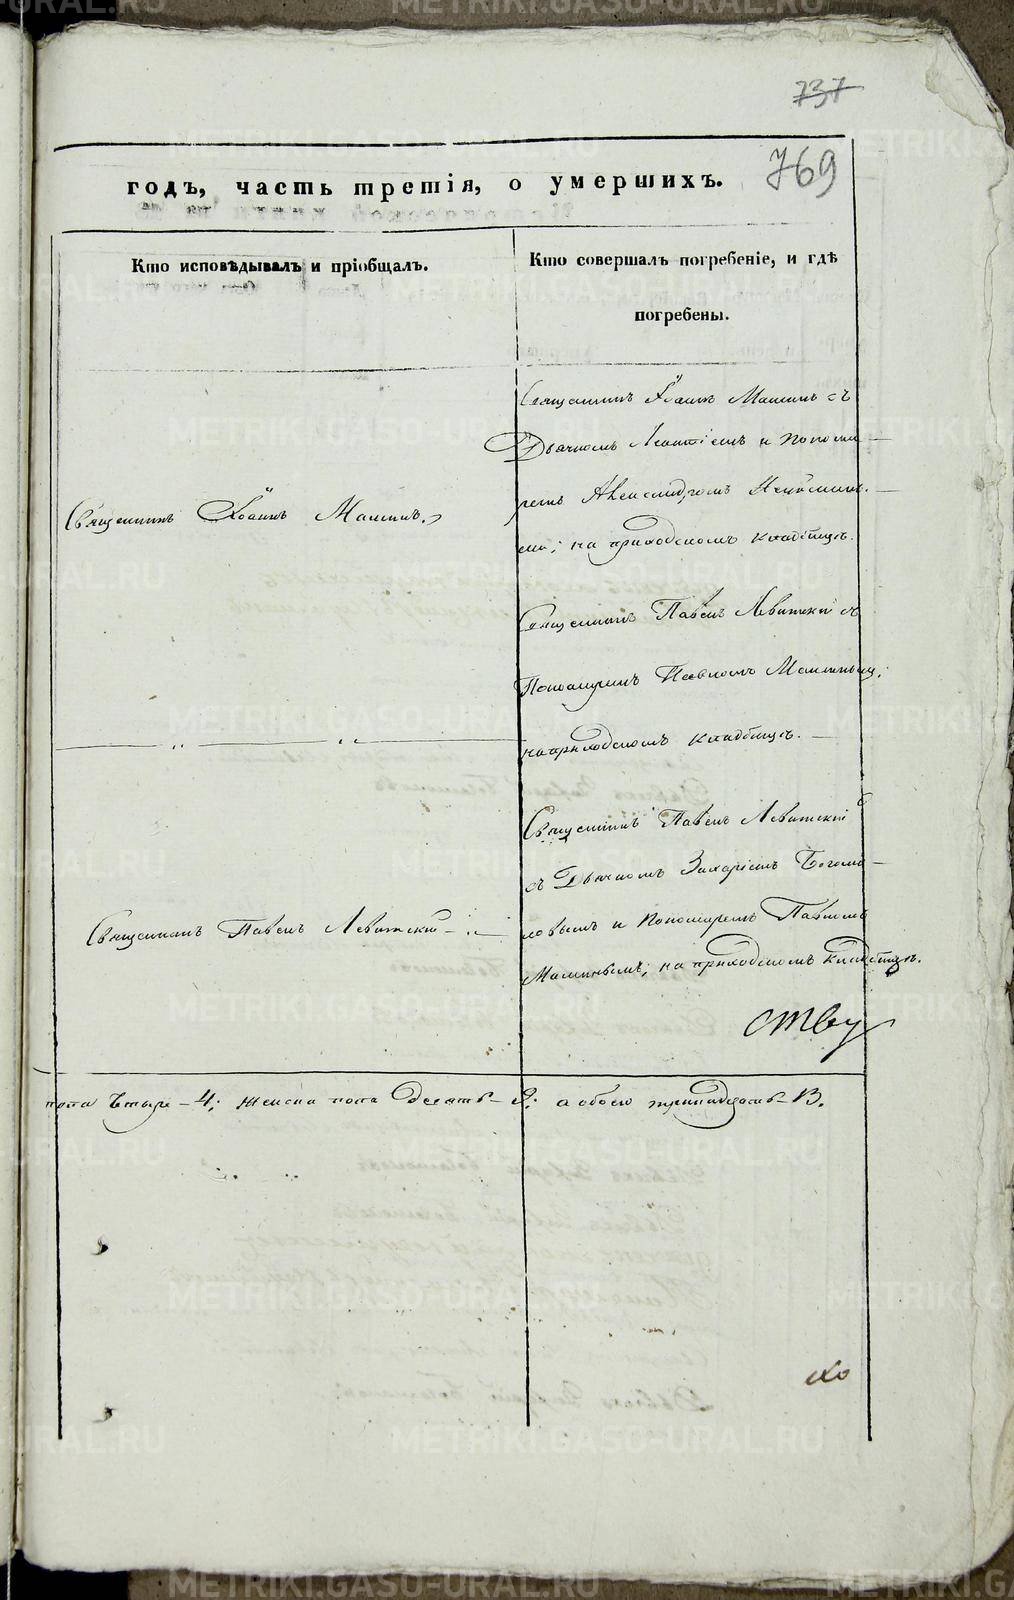 737
769
годъ, часть третія, о умершихъ.
Кто исповѣдывалъ и пріобщалъ.
Кто совершалъ погребеніе, и гдѣ
погребены.
Священникъ Іоаннъ Маминъ съ
Дьячкомъ Леонтіемъ и Понома-
ремъ Александромъ
на приходскомъ кладбищѣ.
Священникъ Іоаннъ Маминъ.
Священникъ Павелъ Левитскій съ
Пономаремъ Павломъ Маминымъ,
на приходскомъ кладбищѣ.
Священникъ Павелъ Левитскій
съ Дьячкомъ Захаріемъ Богомо-
ловымъ и Пономаремъ Павломъ
Маминымъ; на приходскомъ кладбищѣ.
Священникъ Павелъ Левитскій
ству
пола четыре - 4; женска пола девять - 9; а обоего тринадцать - 13.
METRIKI.GASO-URAL.RU